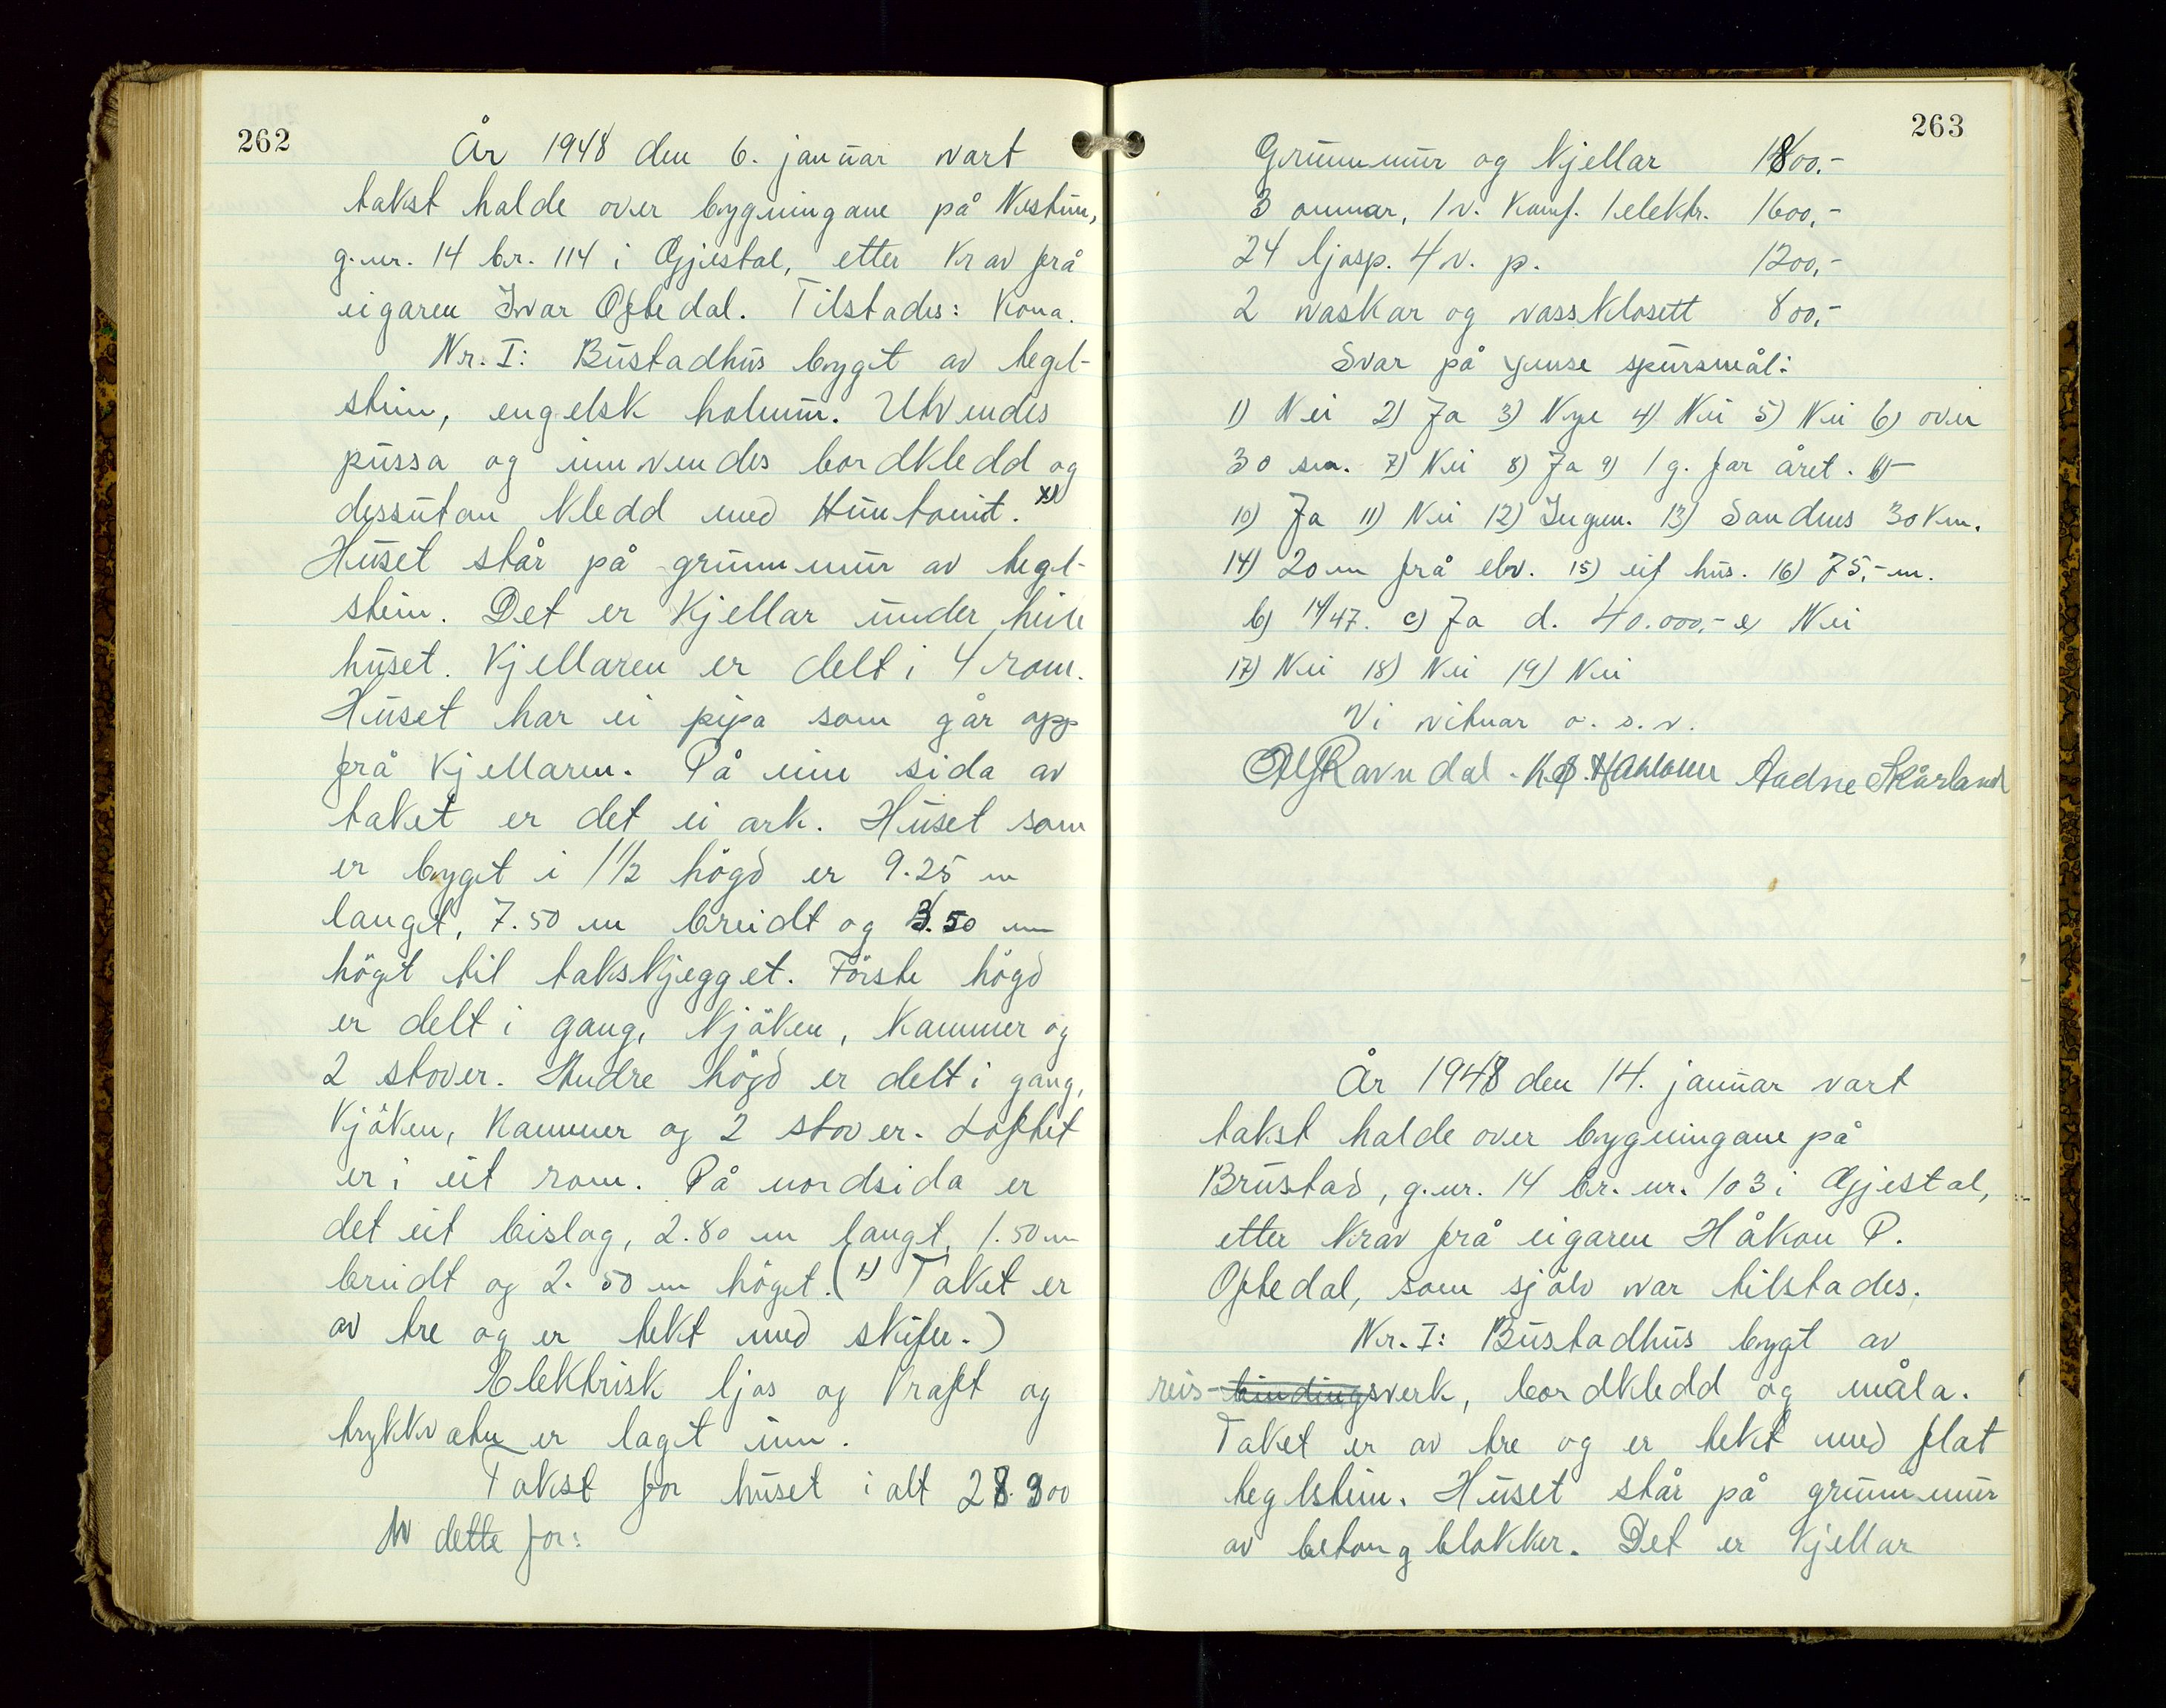 262
År 1948 den 6. januar vart
takst halde over bygningane på Nustun,
g.nr. 14 br. 114 i Gjestal, etter krav frå
eigaren Ivar Oftedal. Tilstades: Kona.
Nr. I: Bustadhus bygt av tegl-
stein, engelsk holmur. Utvendes
pussa og innvendes bordkledd og
dessutan kledd med Huntonit. x)
Huset står på grunnmur av tegl-
stein. Det er kjellar under heile
huset. Kjellaren er delt i 4 rom.
Huset har ei pipa som går opp
frå kjellaren. På eine sida av
taket er det ei ark. Huset som
er bygt i 1 1/2 högd er 9.25 m
langt, 7.50 m breidt og 3.50 m
högt til takskjegget. Förste högd
er delt i gang, kjöken, kammer og
2 stover. Andre högd er delt i gang,
kjöken, kammer og 2 stover. Loftet
er i eit rom. På nordsida er
det eit bislag, 2.80 m langt, 1.50 m
breidt og 2.50 m högt. (x) Taket er
av tre og er tekt med skifer.)
Elektrisk ljos og kraft og
trykkvatn er lagt inn.
Takst for huset i alt 28.300
Av dette for:
263
Grunnmur og kjellar 1800,-
3 omnar, 1 v. komf. 1 elektr. 1600,-
24 ljosp. 4 v. p. 1200,-
2 vaskar og vassklosett 800,-
Svar på ymse spursmål:
1) Nei 2) Ja 3) Nye 4) Nei 5) Nei 6) over
30 sm. 7) Nei 8) Ja 9) 1 g. for året.
10) Ja 11) Nei 12) Ingen. 13) Sandnes 30 km.
14) 20 m frå elv. 15) eit hus. 16) 75,- m.
b) 14/47. c) Ja d. 40.000,- e) Nei
17) Nei 18) Nei 19) Nei
Vi vitnar o. s. v.
Ravndal. Aadne Skårland
År 1948 den 14. januar vart
takst halde over bygningane på
Brustad, g.nr. 14 br. nr. 103 i Gjestal,
etter krav frå eigaren Håkon P.
Oftedal, som sjölv var tilstades.
Nr. I: Bustadhus bygt av
reis-bindingsverk, bordkledd og måla.
Taket er av tre og er tekt med flat
teglstein. Huset står på grunnmur
av betongblokker. Det er kjellar